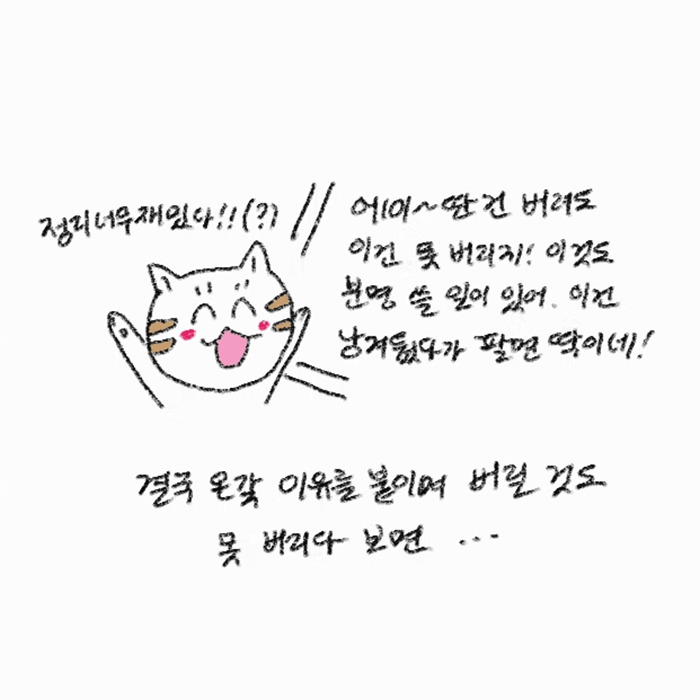 정리너무재밌다!!(?)
에이~딴건 버려도
이건 못 버리지! 이것도
분명 쓸 일이 있어. 이건
낭겨뒀다가 팔면 딱이네!
결국 온갖 이유를 붙이며 버릴 것도
못 버리다 보면 ...